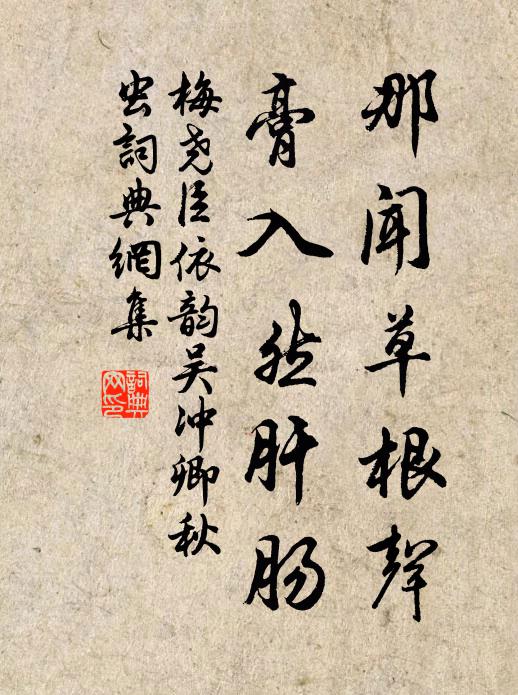 那闻草根聲
膏入然肝肠
梅尧臣依韵吴冲卿秋
虫詞典網集
詞典
网印